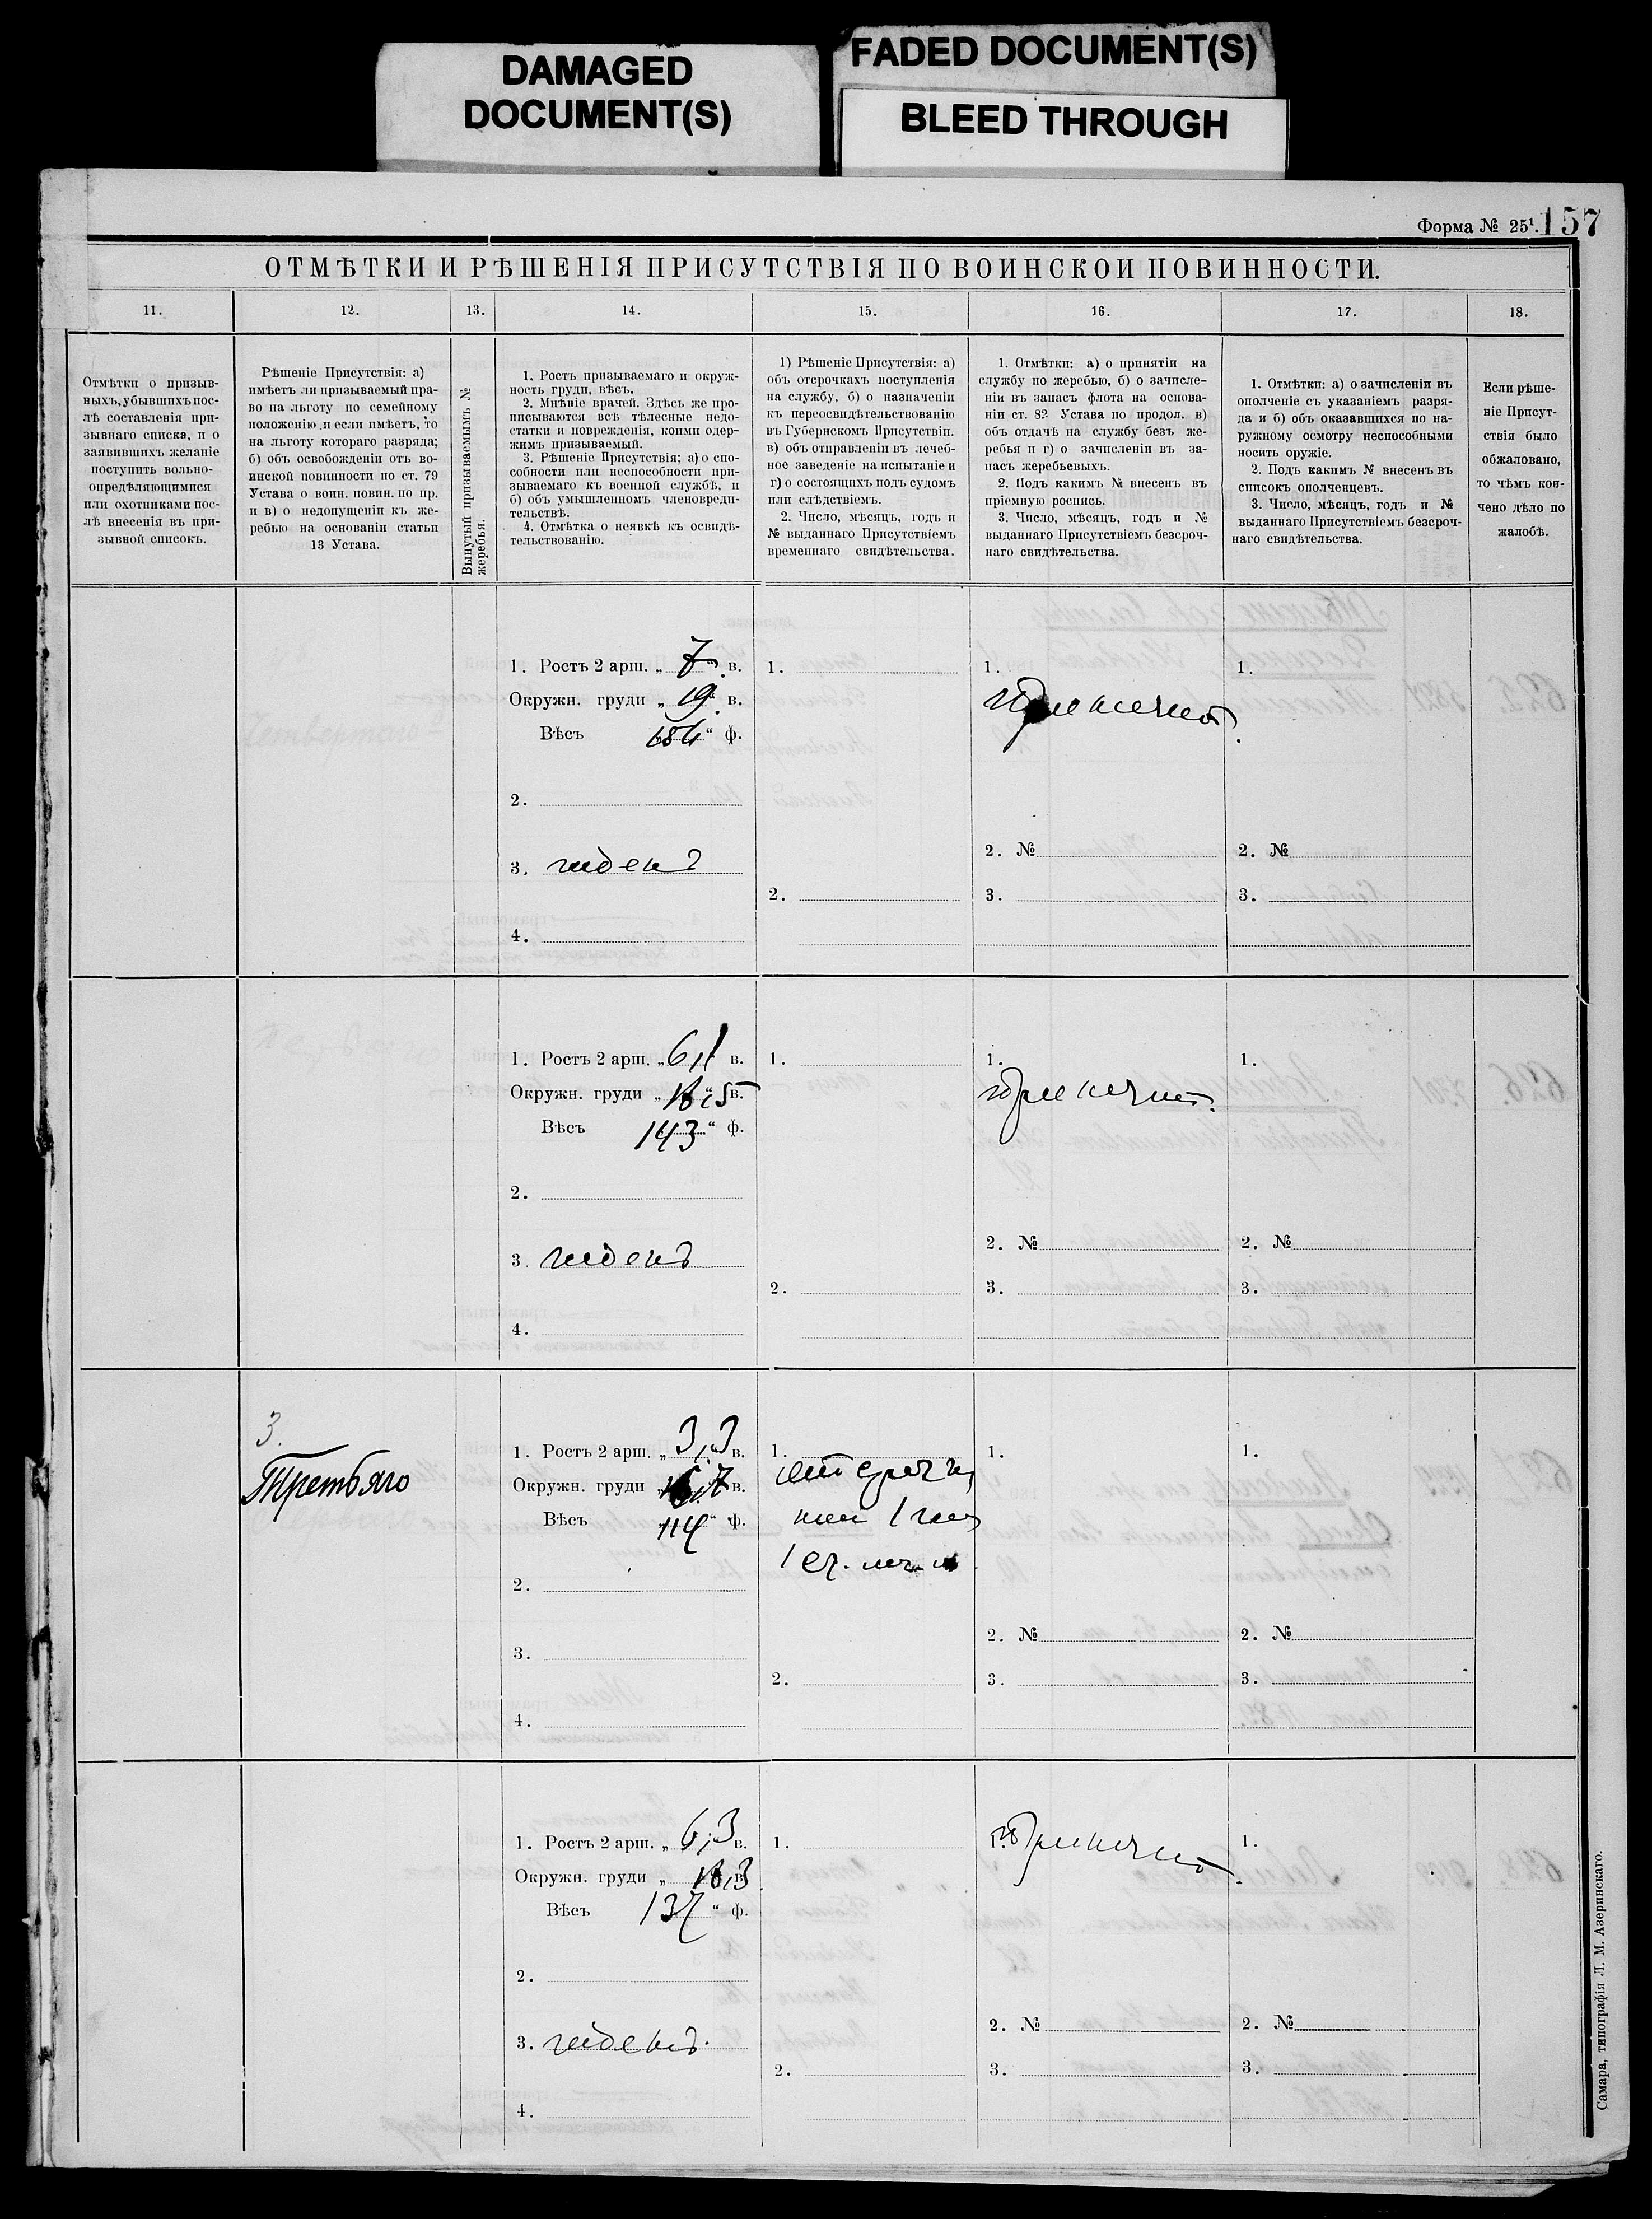 DAMAGED
DOCUMENT(S)
FADED DOCUMENT(S)
BLEED THROUGH
Форма № 25¹.
157
ОТМѢТКИ И РѢШЕНІЯ ПРИСУТСТВІЯ ПО ВОИНСКОЙ ПОВИННОСТИ.
11.
12.
13.
14.
15.
16.
17.
18.
Отмѣтки о призыв-
ныхъ, убывшихъ пос-
лѣ составленія при-
зывнаго списка, и о
заявившихъ желаніе
поступить вольно-
опредѣляющимися
или охотниками пос-
лѣ внесенія въ при-
зывной списокъ.
Рѣшеніе Присутствія: а)
имѣетъ ли призываемый пра-
во на льготу по семейному
положенію и если имѣетъ, то
на льготу котораго разряда;
б) объ освобожденіи отъ во-
инской повинности по ст. 79
Устава о воин. повин. по пр.
и в) о недопущеніи къ же-
ребью на основаніи статьи
13 Устава.
Вынутый призываемымъ №
жеребья.
1. Ростъ призываемаго и окруж-
ность груди, вѣсъ.
2. Мнѣніе врачей. Здѣсь же про-
писываются всѣ тѣлесные недо-
статки и поврежденія, коими одер-
жимъ призываемый.
3. Рѣшеніе Присутствія; а) о спо-
собности или неспособности при-
зываемаго къ военной службѣ, и
б) объ умышленномъ членовреди-
тельствѣ.
4. Отмѣтка о неявкѣ къ освидѣ-
тельствованію.
1) Рѣшеніе Присутствія: а)
объ отсрочкахъ поступленія
на службу, б) о назначеніи
къ переосвидѣтельствованію
въ Губернскомъ Присутствіи.
в) объ отправленіи въ лечеб-
ное заведеніе на испытаніе и
г) о состоящихъ подъ судомъ
или слѣдствіемъ.
2. Число, мѣсяцъ, годъ и
№ выданнаго Присутствіемъ
временнаго свидѣтельства.
1. Отмѣтки: а) о принятіи на
службу по жеребью, б) о зачисле-
ніи въ запасъ флота на основа-
ніи ст. 82 Устава по продол. в)
объ отдачѣ на службу безъ же-
ребья и г) о зачисленіи въ за-
пасъ жеребьевыхъ.
2. Подъ какимъ № внесенъ въ
пріемную роспись.
3. Число, мѣсяцъ, годъ и №
выданнаго Присутствіемъ безсроч-
наго свидѣтельства.
1. Отмѣтки: а) о зачисленіи въ
ополченіе съ указаніемъ разря-
да и б) объ оказавшихся по на-
ружному осмотру неспособными
носить оружіе.
2. Подъ какимъ № внесенъ въ
списокъ ополченцевъ.
3. Число, мѣсяцъ, годъ и №
выданнаго Присутствіемъ безсроч-
наго свидѣтельства.
Если рѣше-
ніе Присут-
ствія было
обжаловано,
то чѣмъ кон-
чено дѣло по
жалобѣ.
1. Ростъ 2 арш. „ 7 „ в.
Окружн. груди „ 19 „ в.
Вѣсъ 154 “ ф.
2.
3. годенъ
4.
1.
2.
1.
принятъ.
2. №
3.
1.
2. №
3.
1. Ростъ 2 арш. „ 6,1 в.
Окружн. груди „ 18,5 в.
Вѣсъ 143 “ ф.
2.
3. годенъ
4.
1.
2.
1.
принятъ.
2. №
3.
1.
2. №
3.
3.
Третьяго
1. Ростъ 2 арш. „ 3,3 в.
Окружн. груди „ 16,7 в.
Вѣсъ 114 “ ф.
2.
3.
4.
1.
отсрочка
на 1 годъ
2.
1.
2. №
3.
1.
2. №
3.
1. Ростъ 2 арш. „ 6,3 в.
Окружн. груди „ 18,3 в.
Вѣсъ 137 “ ф.
2.
3. годенъ.
4.
1.
2.
1.
принятъ.
2. №
3.
1.
2. №
3.
Самара, типографія Л. М. Азеринскаго.